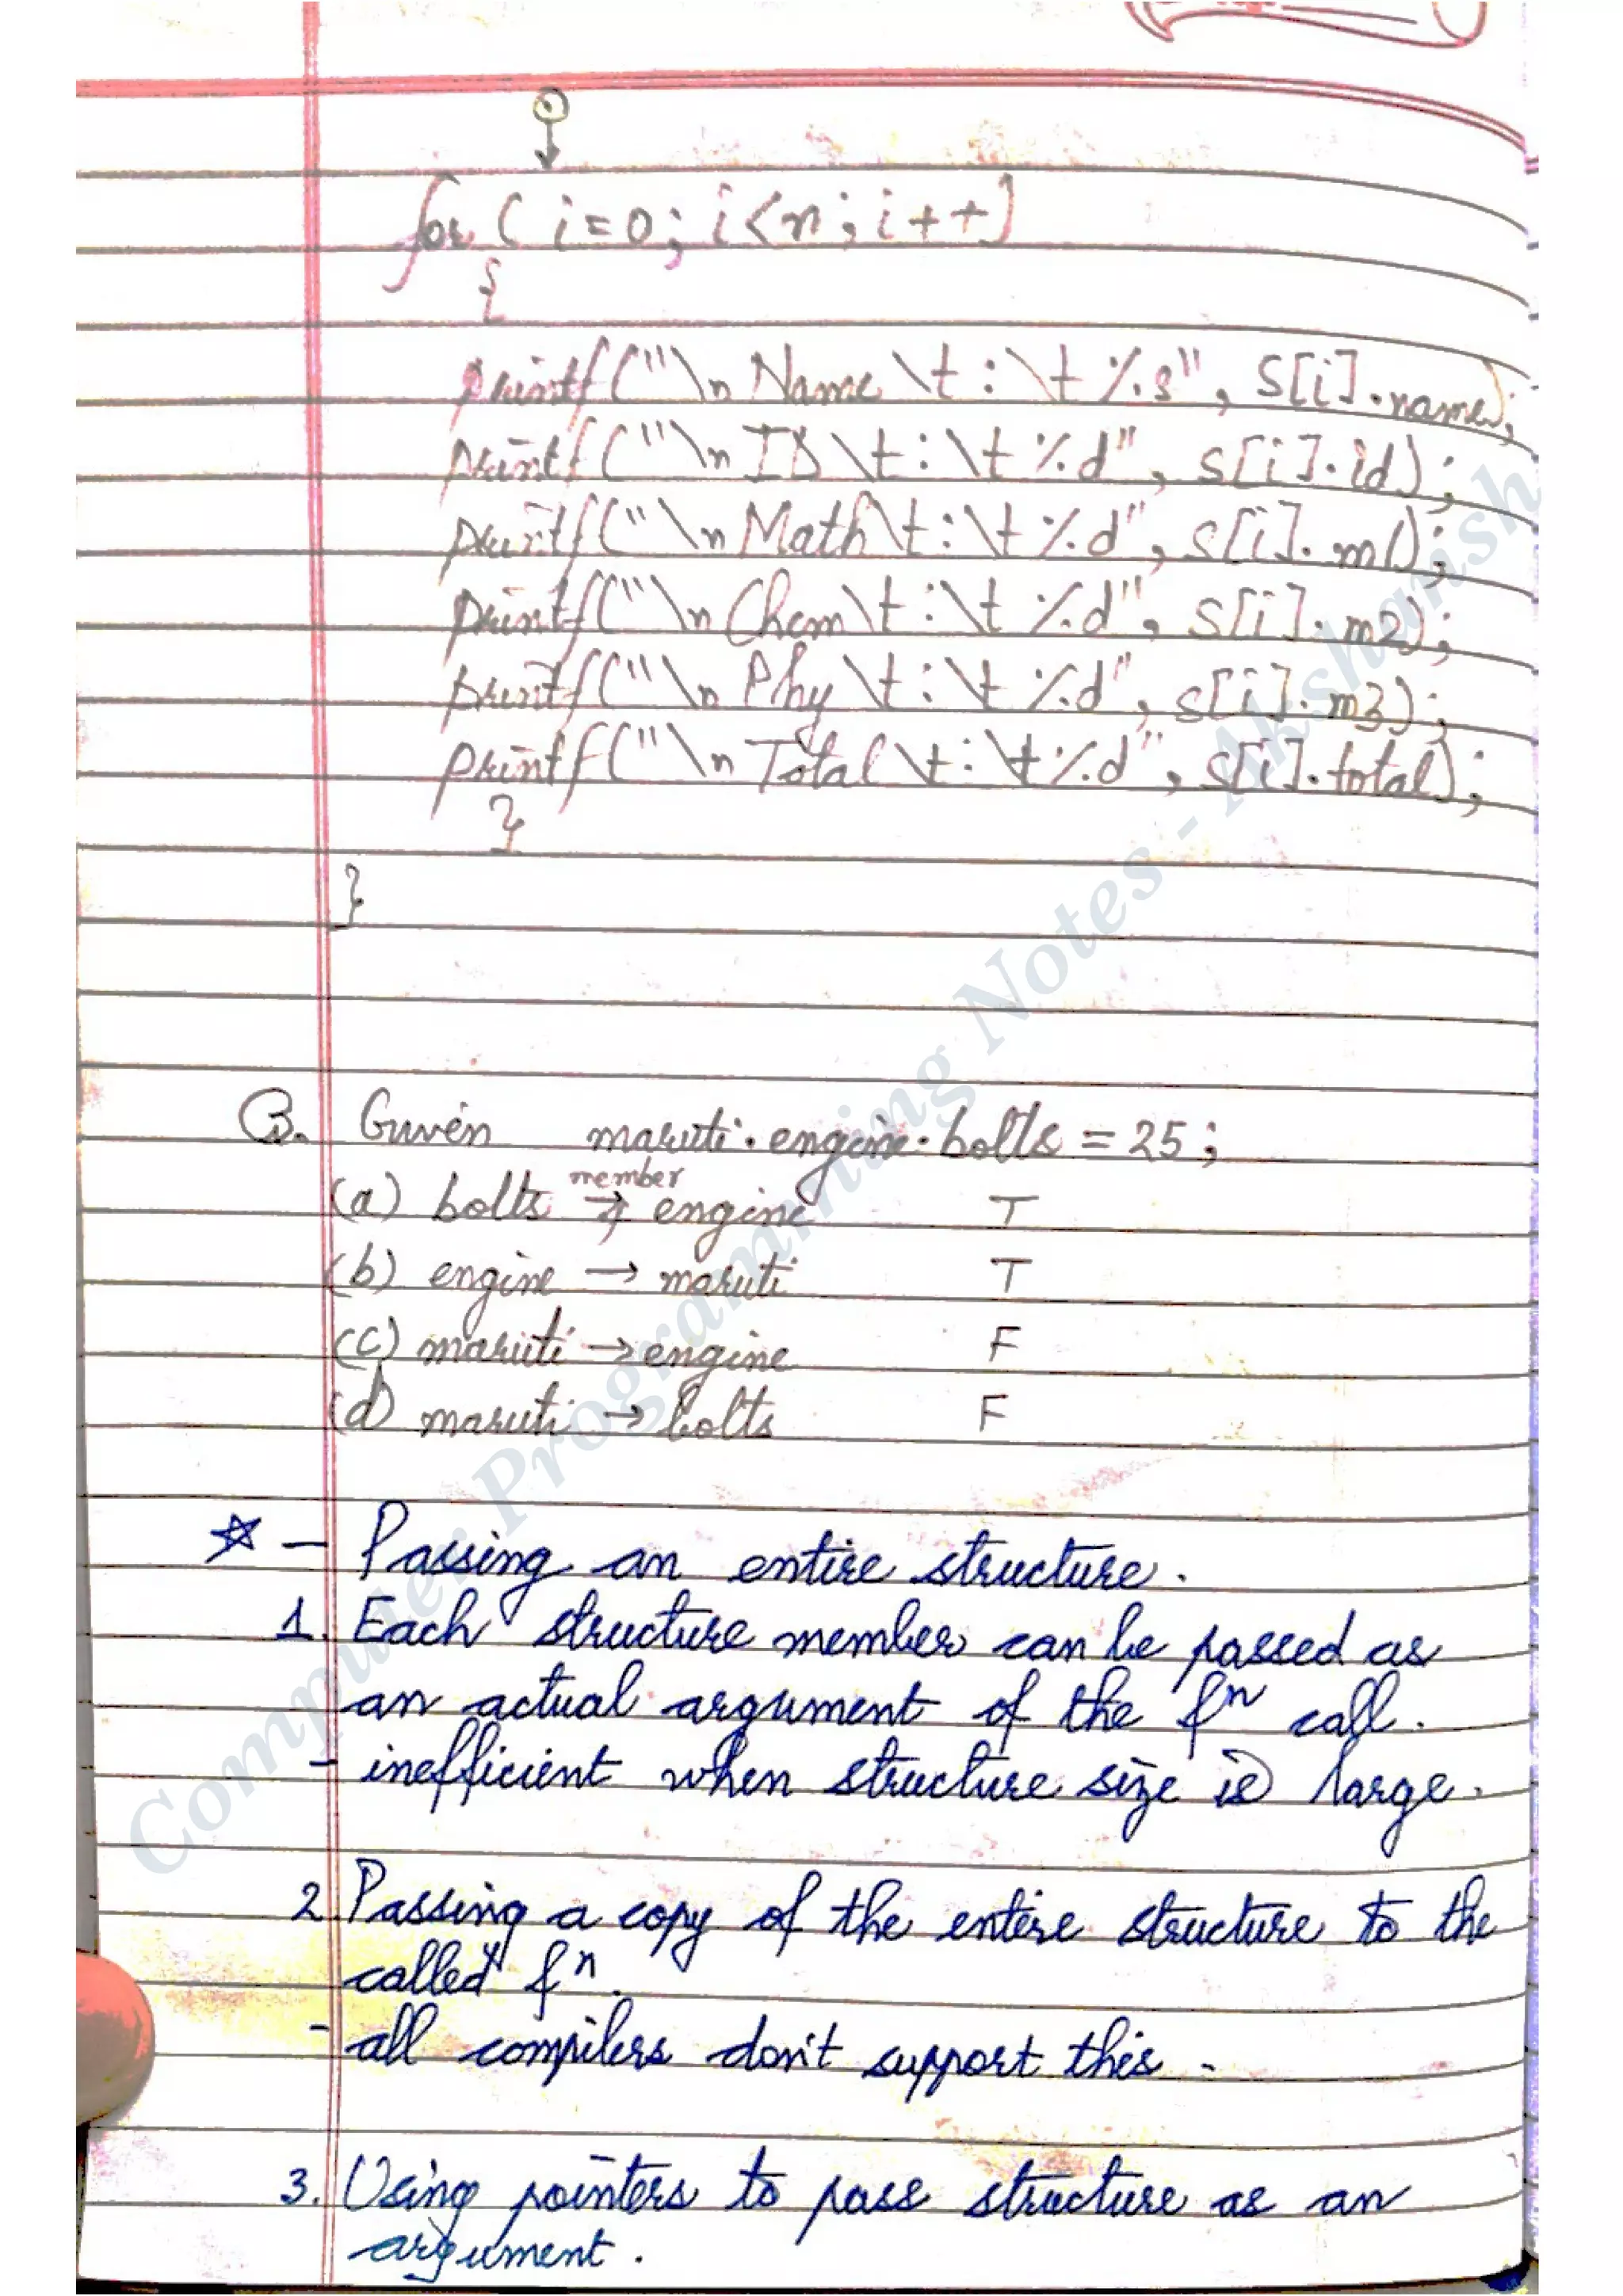 for ( i=0; i<n; i++)
{
printf("\n Name \t : \t %s", S[i].name);
printf("\n ID \t : \t %d", s[i].id);
printf("\n Math \t : \t %d", s[i].m1);
printf("\n Chem \t : \t %d", s[i].m2);
printf("\n Phy \t : \t %d", s[i].m3);
printf("\n Total \t : \t %d", s[i].total);
}
}
Q. Given maruti.engine.bolts = 25;
member
(a) bolts → engine T
(b) engine → maruti T
(c) maruti → engine F
(d) maruti → bolts F
☆ - Passing an entire structure.
1. Each structure member can be passed as
an actual argument of the fⁿ call.
- inefficient when structure size is large.
2. Passing a copy of the entire structure to the
called fⁿ.
- all compilers don't support this -
3. Using pointers to pass structure as an
argument.
Computer Programming Notes - Akshansh